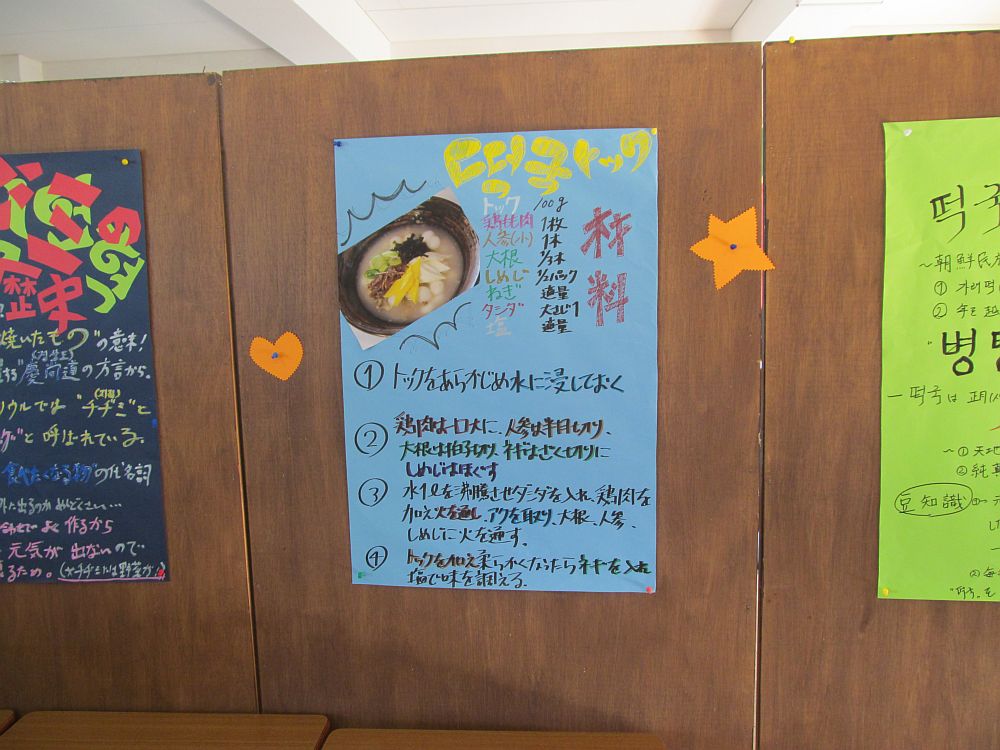 チヂミの
歴史
焼いたもの"の意味!
慶尚道の方言から。
(경상도)
ソウルでは"チヂミ"と
(지짐)
と呼ばれている。
食べたくなる物"の代名詞
外に出るのがめんどくさい…
作るから
元気が出ないので
るため。(※チヂミには野菜が
떡국トック
材料
トック 100g
鶏もも肉 1枚
人参(小) 1本
大根 1/3本
しめじ 1/2パック
ねぎ 適量
ダシダ 大さじ1
塩 適量
① トックをあらかじめ水に浸しておく
② 鶏肉は一口大に、人参は半月切り、
大根は拍子切り、ネギはざく切りに
しめじはほぐす
③ 水1ℓを沸騰させダシダを入れ、鶏肉を
加え火を通し、アクを取り、大根、人参、
しめじに火を通す。
④ トックを加え柔らかくなったらネギを入れ
塩で味を調える。
떡국
~朝鮮民
① 가래떡
②
병
ー떡국は 正月
~① 天地
② 純真
豆知識
② 毎
"떡국"を